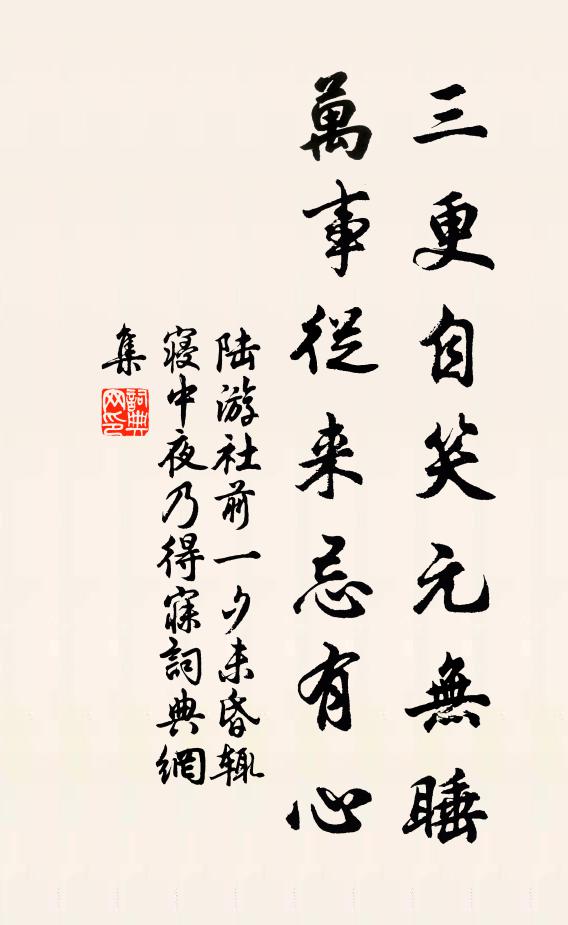 三更自笑元無睡
萬事從来忌有心
陆游社前一夕未昏輙
寢中夜乃得寐詞典網
集
詞典
网印